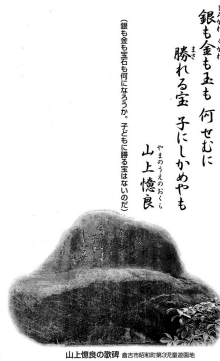 銀も金も玉も 何せむに
まさ
勝れる宝 子にしかめやも
やまのうえのおくら
山上憶良
(銀も金も宝石も何になろうか。子どもに勝る宝はないのだ)
山上憶良の歌碑 倉吉市昭和町第3児童遊園地